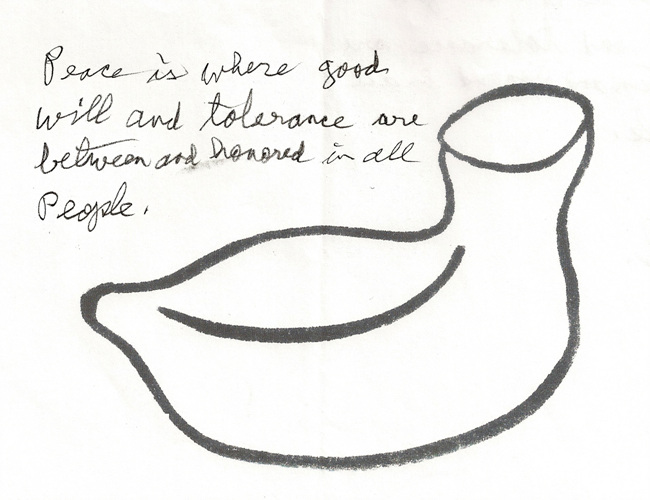 Peace is where good
will and tolerance are
between and honored in all
People.